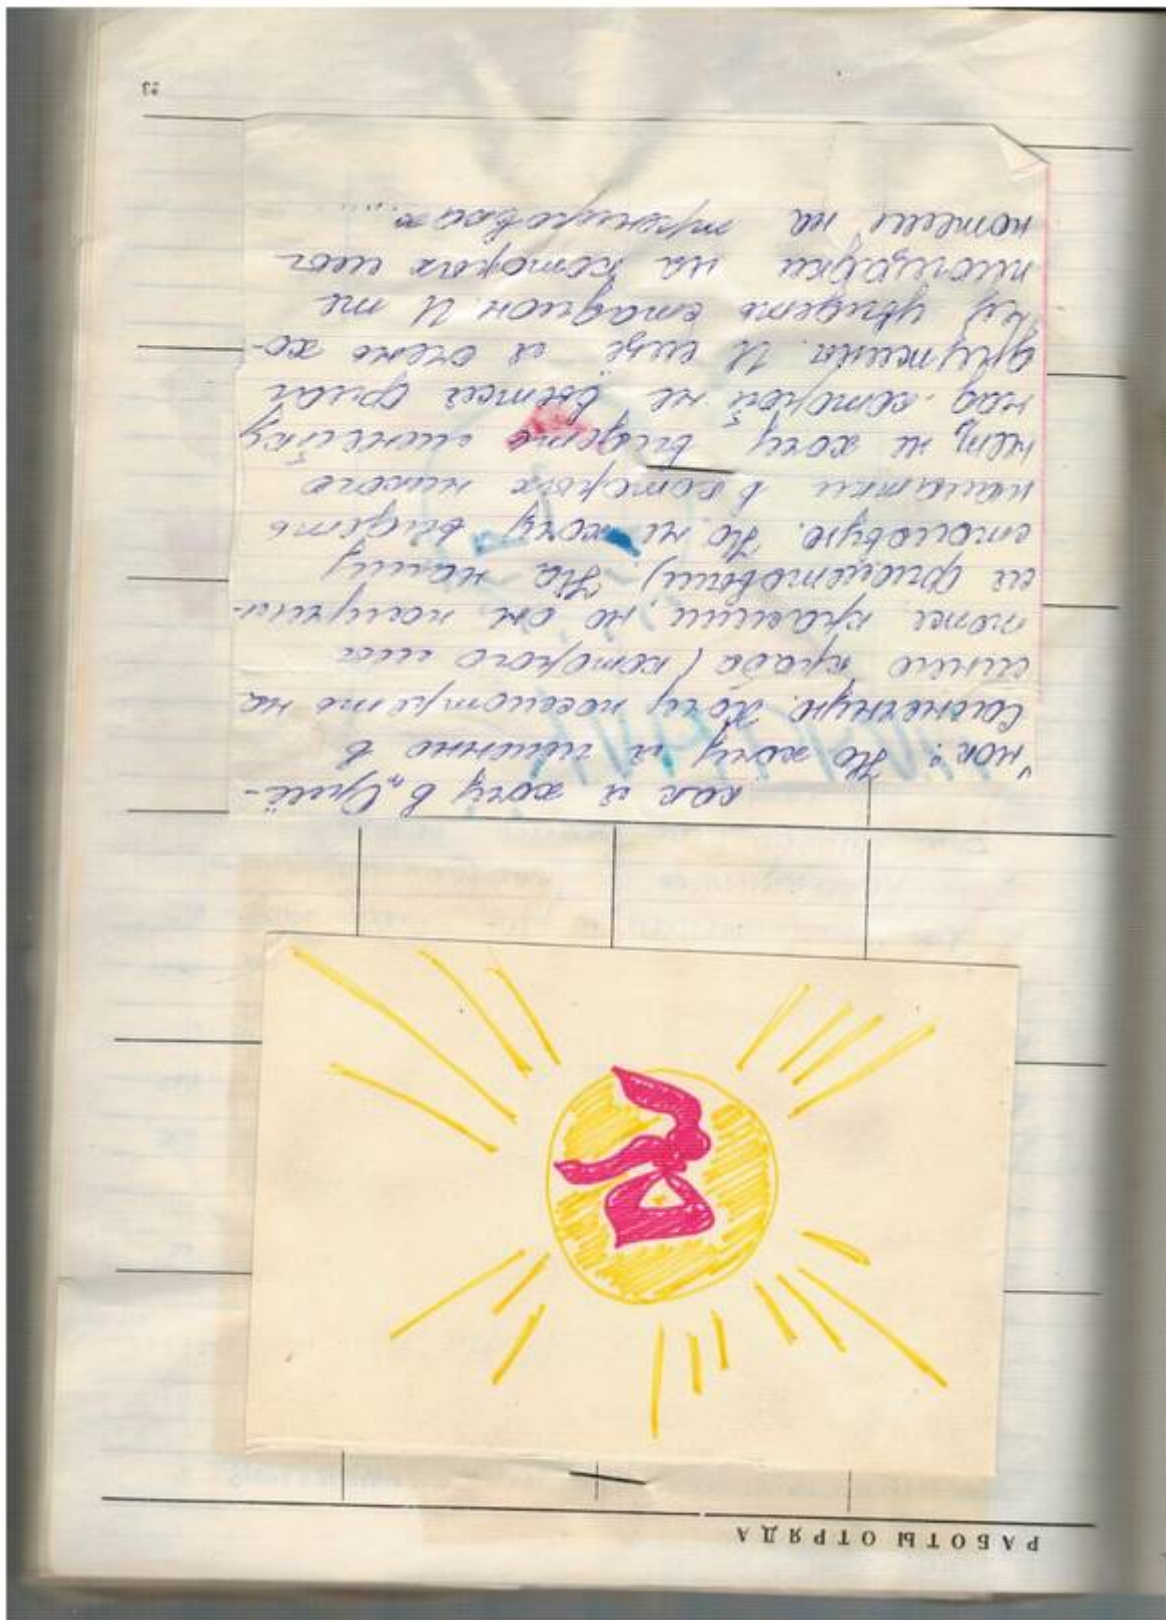 РАБОТЫ ОТРЯДА
как я хочу в „Орлё-
нок“. Но хочу я именно в
Солнечную. Хочу посмотреть на
синего краба (которого мы
тоже красили, но он получил-
ся фиолетовый) На нашу
столовую. Но не хочу видеть
палатки в которых никого
нет, не хочу видеть линейку
над которой не вьётся флаг
дружины. И ещё я очень хо-
чу увидеть стадион. И те
площадки на которых мы
потели на тренировках....